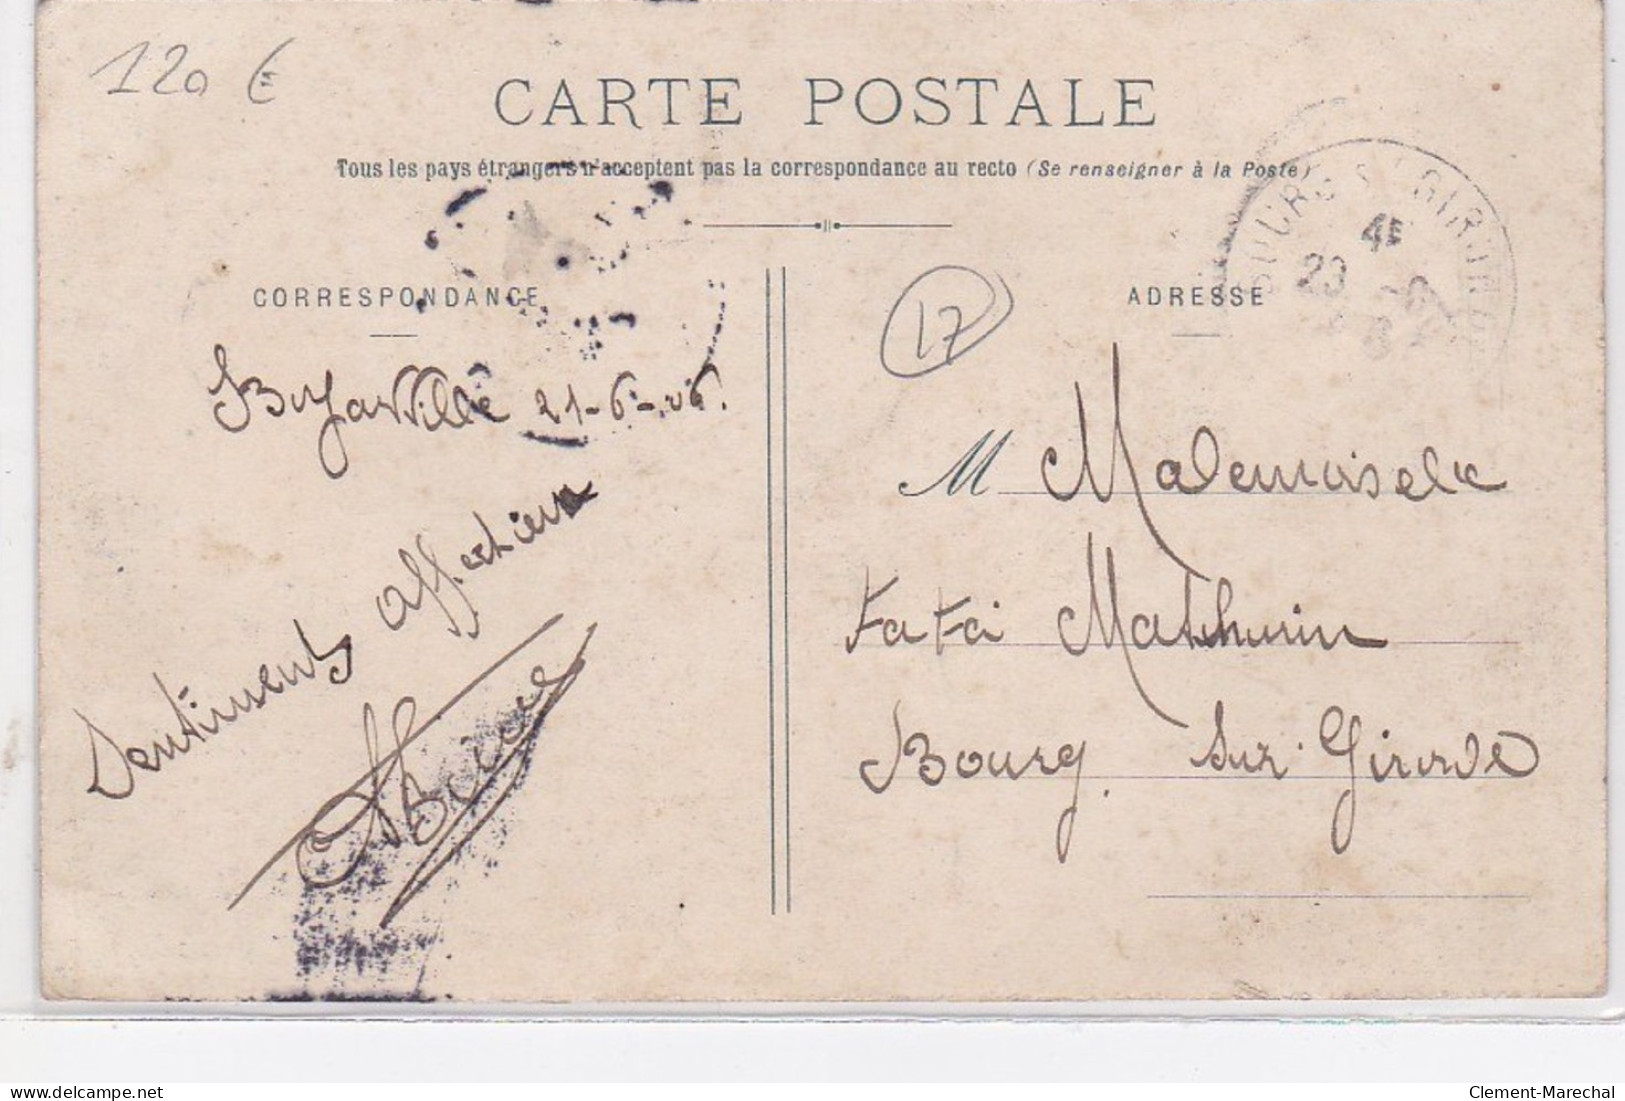 120 €
CARTE POSTALE
Tous les pays étrangers n'acceptent pas la correspondance au recto (Se renseigner à la Poste)
CORRESPONDANCE
Boyardville 21-6-06.
Sentiments affectueux
17
ADRESSE
BOURG S GIRONDE
4E
23 -6
M Mademoiselle
Fafa Mathurin
Bourg sur Gironde
delcampe.net
Clement-Marechal